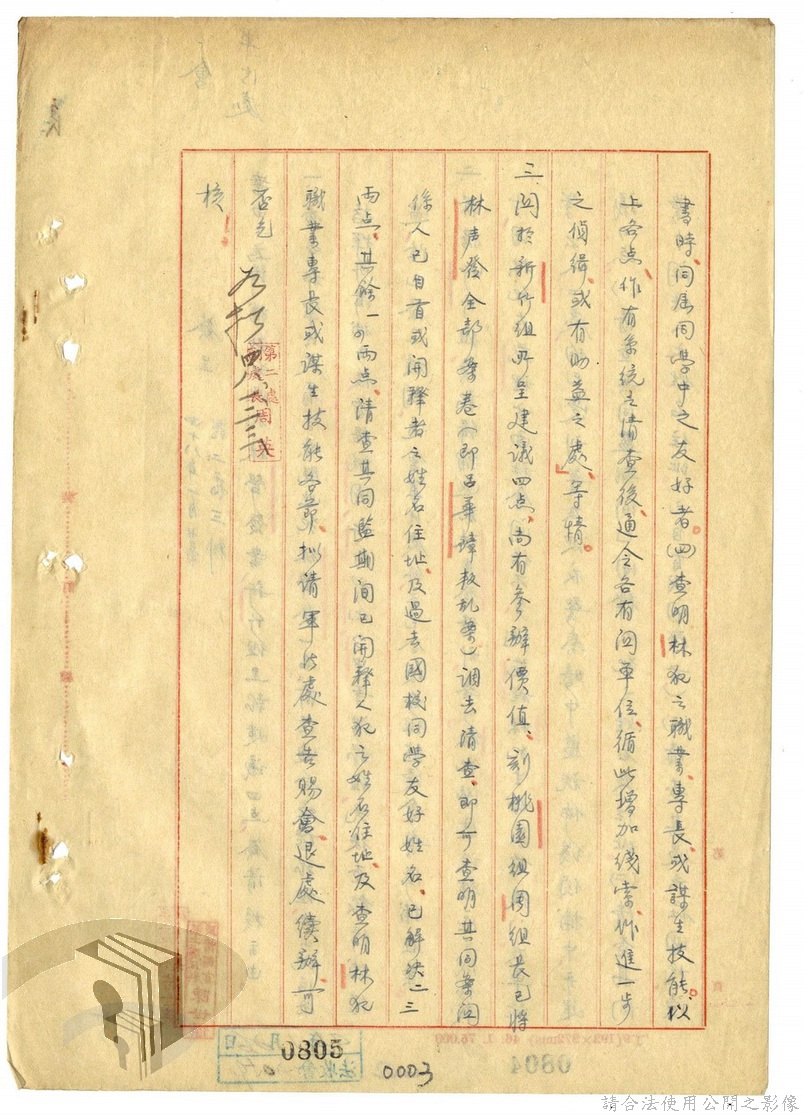 書時、同屬同學中之友好者。(四)查明林犯之職業、專長、或謀生技能。以
上各点、作有系統之清查後、通令各有関單位、循此增加线索、作進一步
之偵緝、或有助益之處、等情。
三、関於新竹組所呈建議四点、尚有参辦價值、刻桃園組周組長已將
林声發全部案卷(即呂華璋叛乱案)調去清查、即可查明其同案関
係人已自首或開釋者之姓名住址、及過去國校同學友好姓名、已解決二三
兩点、其餘一四兩点、請查其同監期间已開釋人犯之姓名住址、及查明林犯
職業專長或謀生技能各節、拟請軍法處查告賜會、退處續辦、可
否乞
核
第二處
周英
0805
0003
0804
請合法使用公開之影像